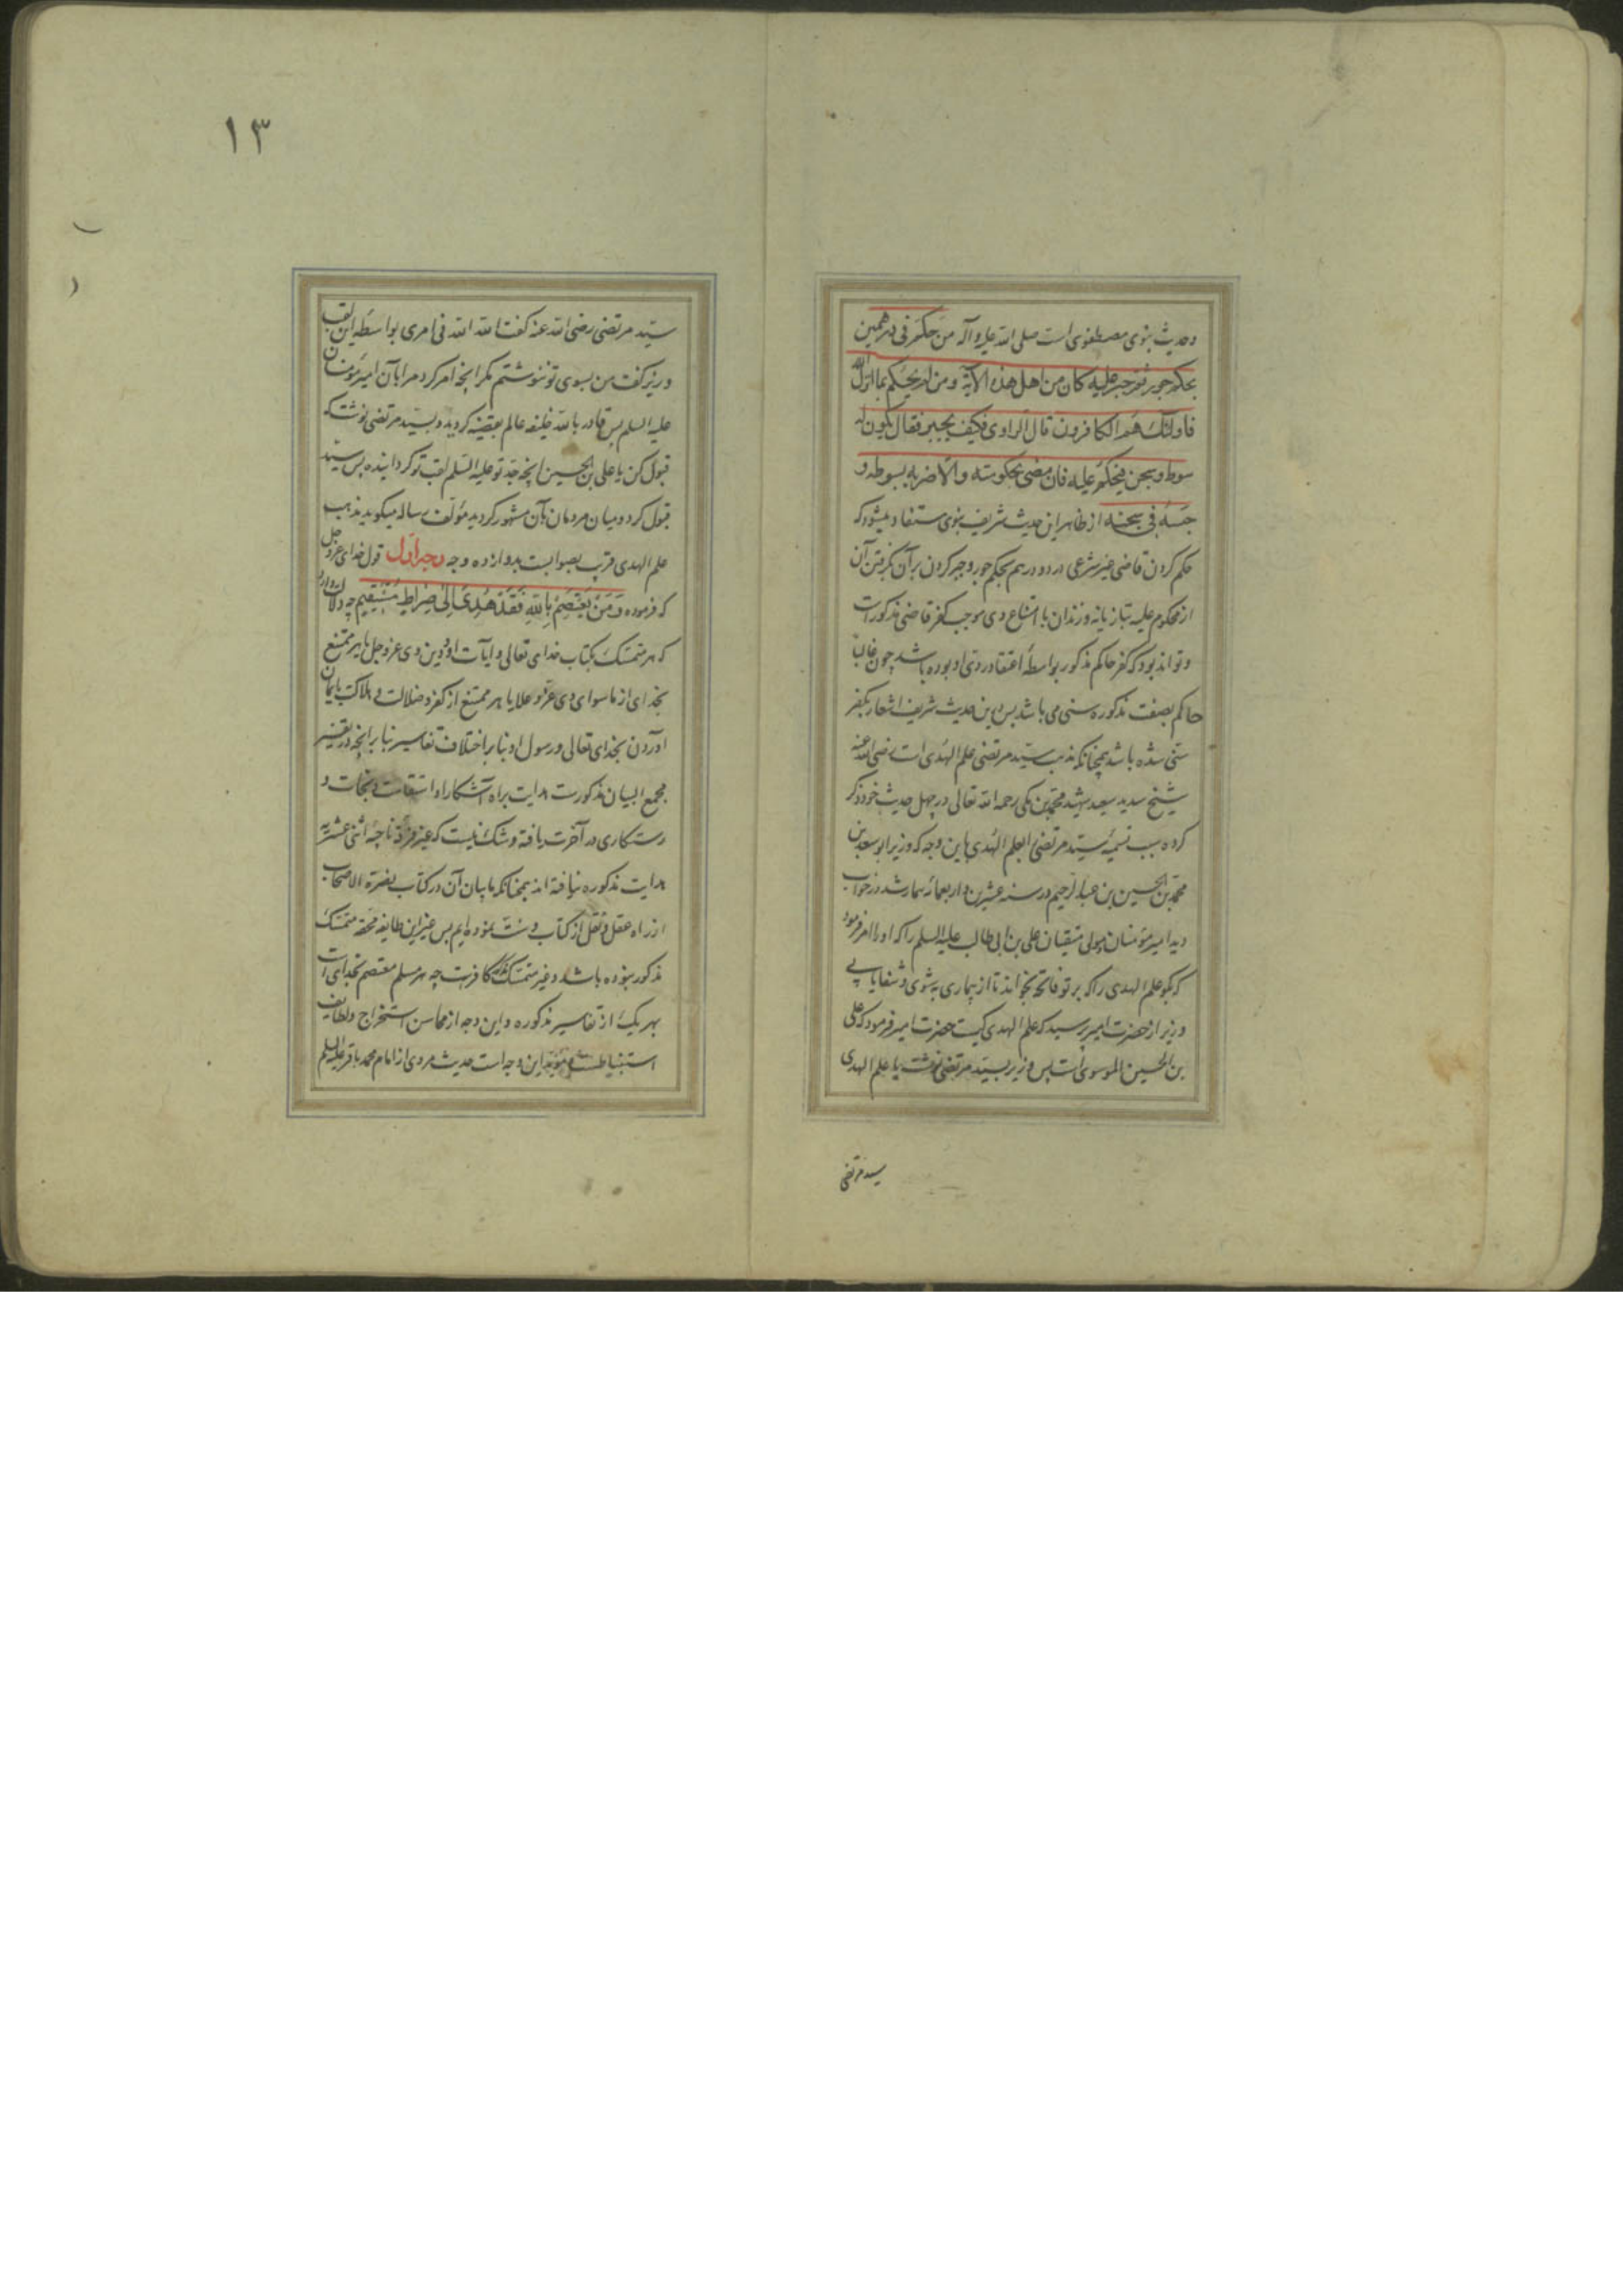 وحدیث نبوی مصطفوی است صلی الله علیه وآله من حکم فی درهمین
بحکم جور ثم جبر علیه کان من اهل هذه الآیة ومن لم یحکم بما انزل الله
فاولئک هم الکافرون قال الراوی فکیف یجبر فقال یکون له
سوط وسجن فیحکم علیه فان رضی بحکومته والا ضربه بسوطه و
حبسه فی سجنه از ظاهر این حدیث شریف نبوی مستفاد میشود که
حکم کردن قاضی غیر شرعی در دو درهم بحکم جور وجبر کردن بر آن بگرفتن آن
از محکوم علیه بتازیانه وزندان با امتناع وی موجب کفر قاضی مذکور است
وتواند بود که کفر حاکم مذکور بواسطهٔ اعتقاد ردی او بوده باشد چون غالباً
حاکم بصفت مذکوره سنی می باشد پس این حدیث شریف اشعار بکفر
سنی شده باشد همچنانکه مذهب سید مرتضی علم الهدی است رضی الله عنه
شیخ سدید سعید شهید محمد بن مکی رحمه الله تعالی در چهل حدیث خود ذکر
کرده سبب تسمیهٔ سید مرتضی بعلم الهدی باین وجه که وزیر ابو سعد بن
محمد بن الحسین بن عبد الرحیم در سنه عشرین واربعمائه بیمار شد در خواب
دید امیر مؤمنان مولی متقیان علی بن ابی طالب علیه السلم را که او را امر فرمود
که بگو علم الهدی را که بر تو فاتحه بخواند تا از بیماری به شوی وشفا یابی
وزیر از حضرت امیر پرسید که علم الهدی کیست حضرت امیر فرمود که علی
بن الحسین الموسوی است پس وزیر بسید مرتضی نوشت یا علم الهدی
سید مرتضی
١٣
سید مرتضی رضی الله عنه کفت الله الله فی امری بواسطه این لقب
وزیر کفت من بسوی تو ننوشتم مکر انچه امر کرد مرا بآن امیر مؤمنان
علیه السلم پس قادر بالله خلیفه عالم بقضیه کردید وبسید مرتضی نوشت که
قبول کن یا علی بن الحسین انچه جد تو علیه السلم لقب تو کردانیده پس سید
قبول کرد ومیان مردمان بآن مشهور کردید مؤلف رساله میکوید مذهب
علم الهدی قریب بصوابست بدوازده وجه وجه اول قول خدای عز وجل
که فرموده ومن یعتصم بالله فقد هدی الی صراط مستقیم چه دلالت دارد
که هر متمسک بکتاب خدای تعالی وایات او ودین وی عز وجل یا هر ممتنع
بخدای از ماسوای وی عز وعلا یا هر ممتنع از کفر وضلالت وهلاکت بایمان
آوردن بخدای تعالی ورسول او بنابر اختلاف تفاسیر بنابر انچه در تفسیر
مجمع البیان مذکورست هدایت براه آشکارا واستقامت ونجات و
رستکاری در آخرت یافته وشک نیست که غیر فرقهٔ ناجیهٔ اثنی عشریه
هدایت مذکوره نیافته اند همچنانکه ما بیان آن در کتاب نصرة الاصحاب
از راه عقل ونقل از کتاب وسنت نموده ایم پس غیر این طایفه محقه متمسک
مذکور نبوده باشد وغیر متمسک کافرست چه هر مسلم معتصم بخدای است
بهر یک از تفاسیر مذکوره واین وجه از محاسن استخراج ولطایف
استنباطست ومؤید این وجه است حدیث مروی از امام محمد باقر علیه السلم